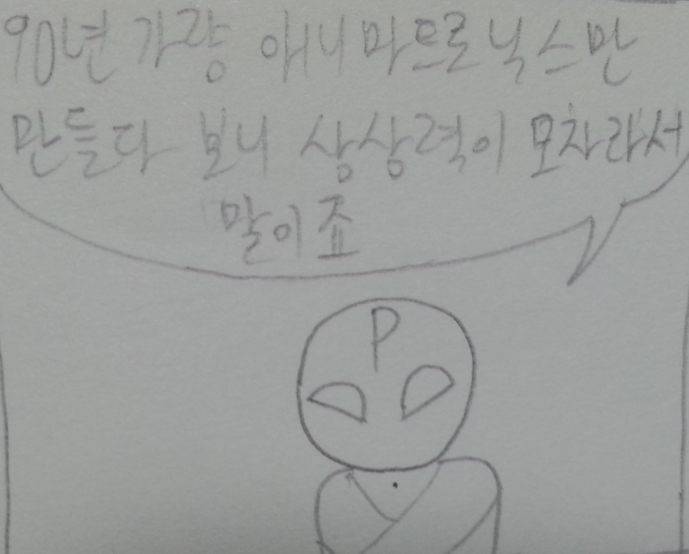 90년 가량 애니마트로닉스만
만들다 보니 상상력이 모자라서
말이죠
P